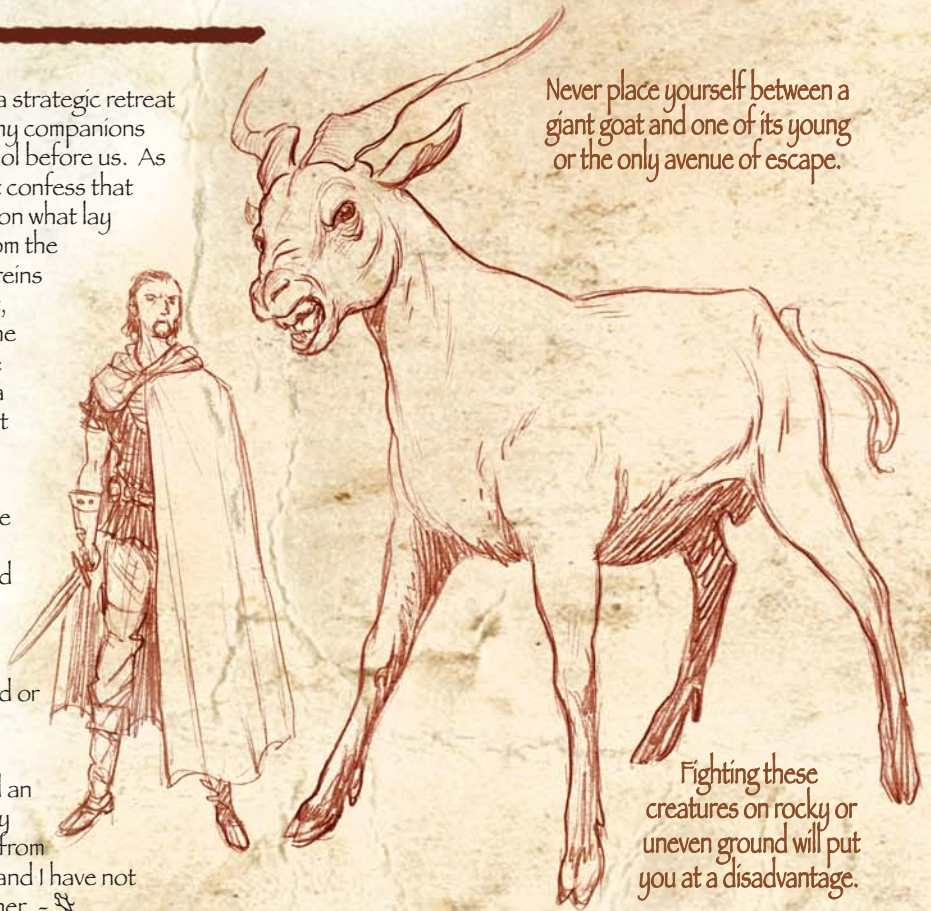 a strategic retreat
my companions
ol before us. As
t confess that
on what lay
om the
reins
,
ne
e
a
t
e
d
d or
d an
y
from
and I have not
her. -
Never place yourself between a
giant goat and one of its young
or the only avenue of escape.
Fighting these
creatures on rocky or
uneven ground will put
you at a disadvantage.